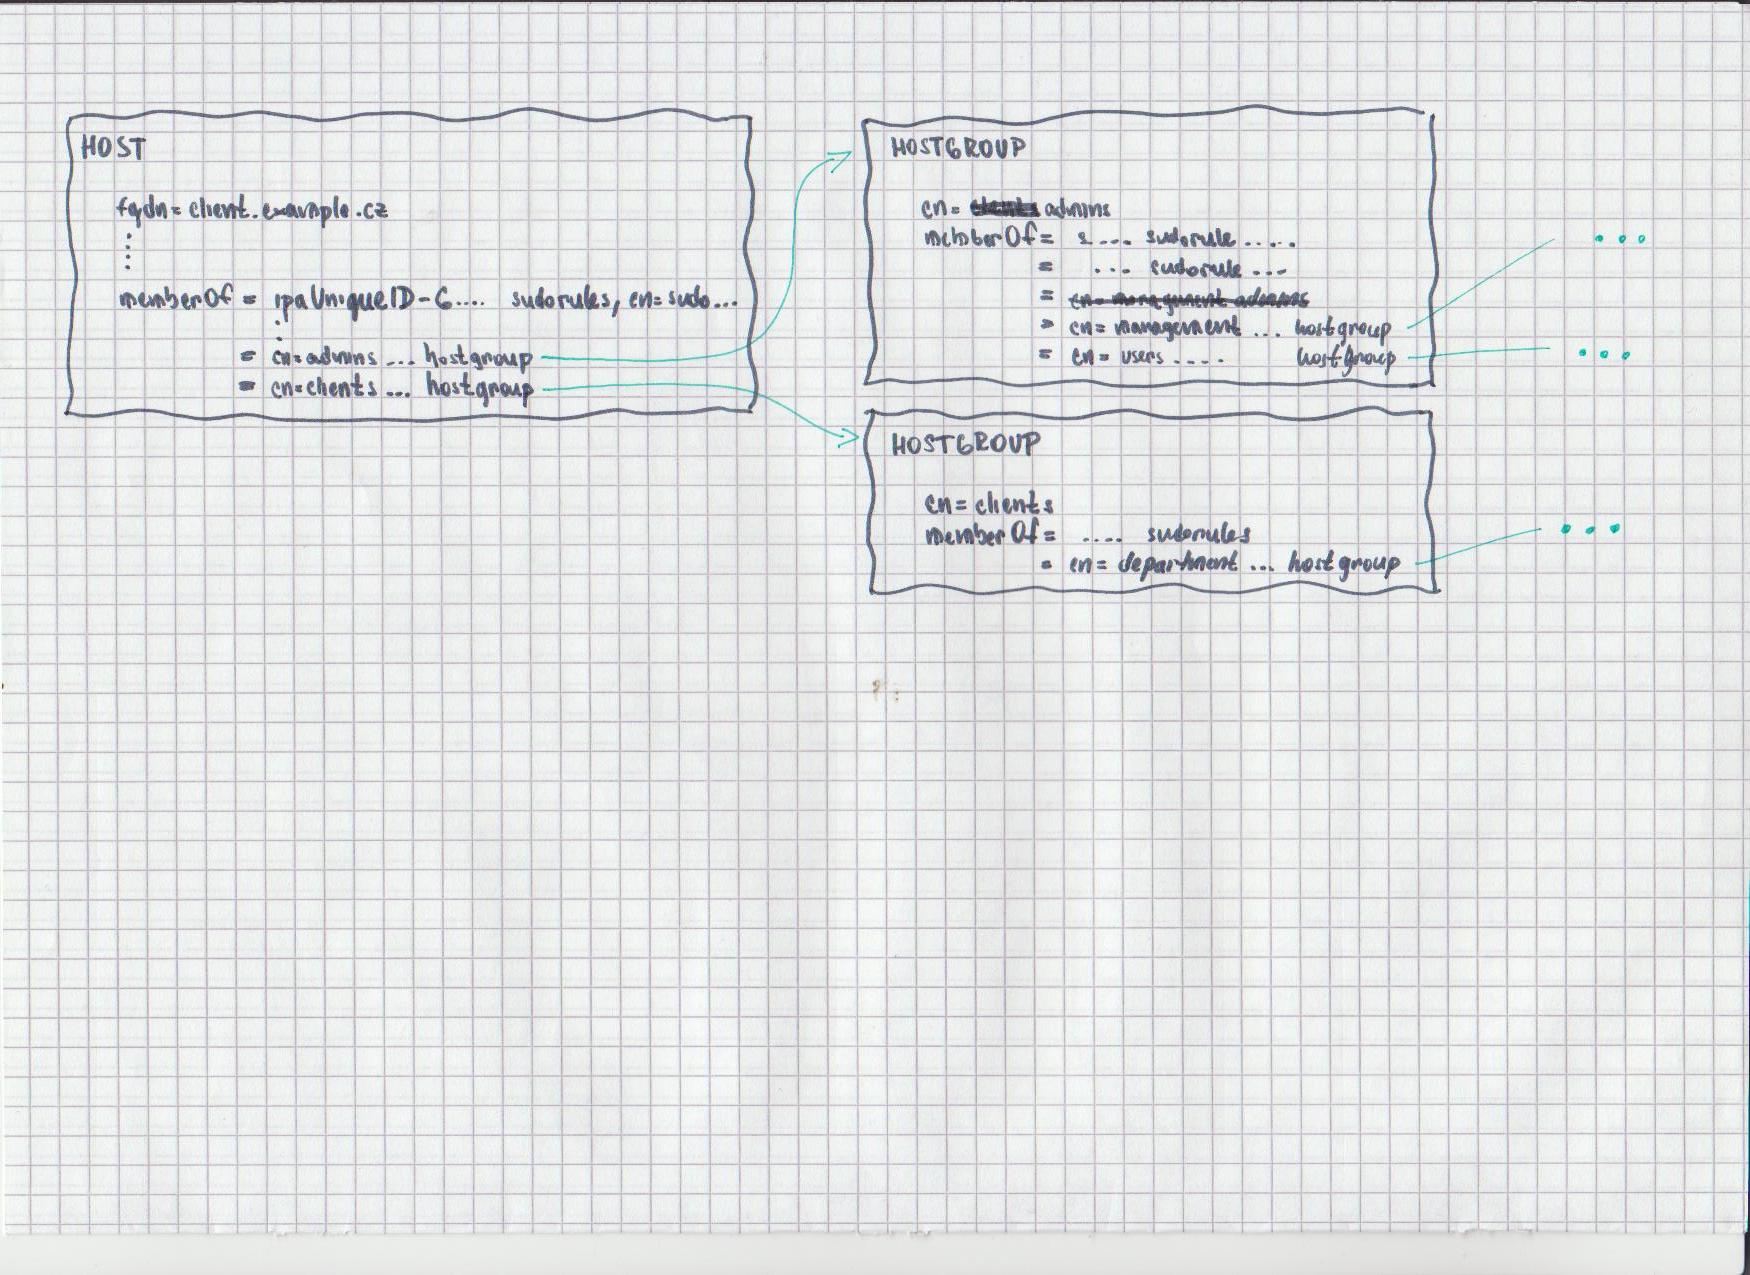 HOST
fqdn= client.example.cz
memberOf = ipaUniqueID-6.... sudorules, cn=sudo...
= cn=admins ... hostgroup
= cn=clients ... hostgroup
HOSTGROUP
cn= admins
memberOf= .... sudorule .....
= ... sudorule ...
= cn= managment admins
= cn= management ... hostgroup
= cn= users .... hostgroup
HOSTGROUP
cn= clients
memberOf= .... sudorules
= cn= department ... hostgroup